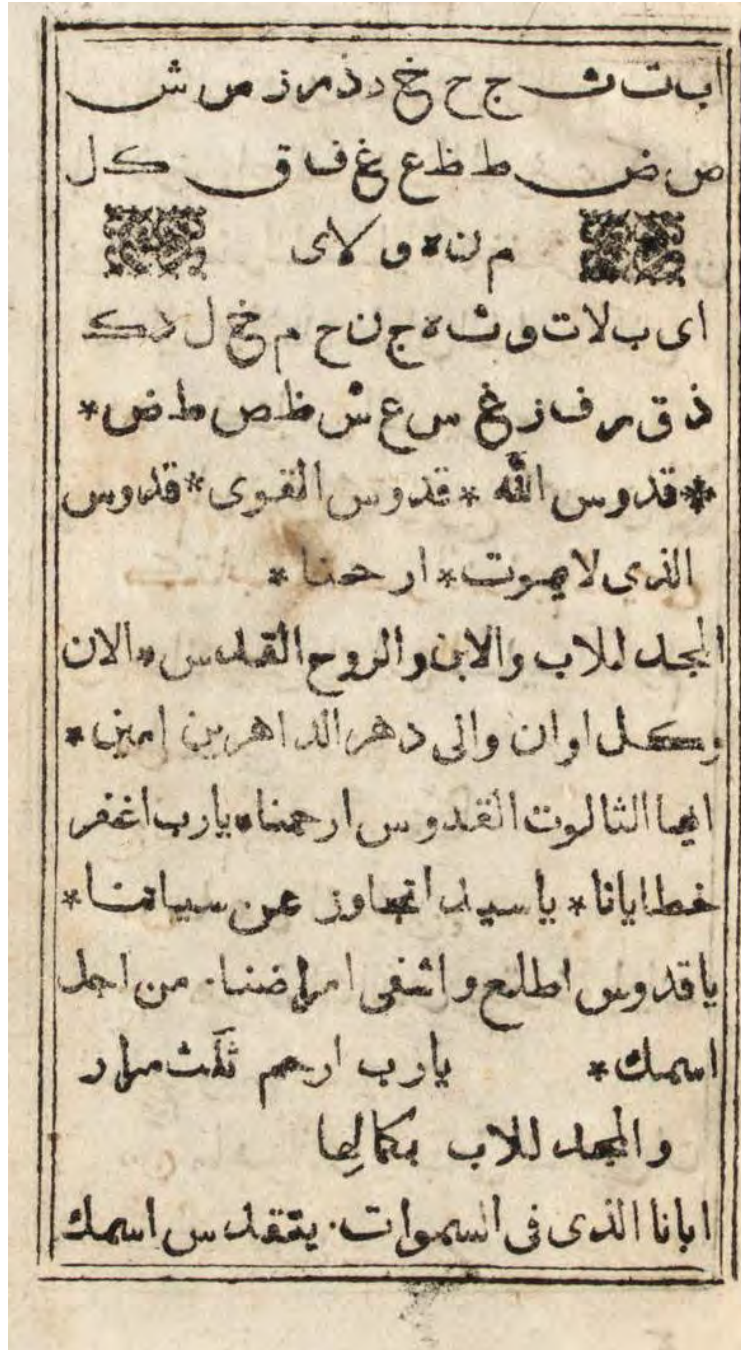 ا ب ت ث ج ح خ د ذ ر ز س ش
ص ض ط ظ ع غ ف ق ك ل
م ن ه و لا ى
ا ى ب لا ت و ث ه ج ن ح م خ ل د ك
ذ ق ر ف ز غ س ع ش ظ ص ط ض *
* قدوس الله * قدوس القوى * قدوس
الذى لا يموت * ارحمنا *
المجد للاب والابن والروح القدس * الان
وكل اوان والى دهر الداهرين امين *
ايها الثالوت القدوس ارحمنا * يارب اغفر
خطايانا * ياسيد اتجاوز عن سياتنا *
ياقدوس اطلع واشفى امراضنا . من اجل
اسمك * يارب ارحم ثلث مرار
والمجد للاب بكمالها
ابانا الذى فى السموات . يتقدس اسمك